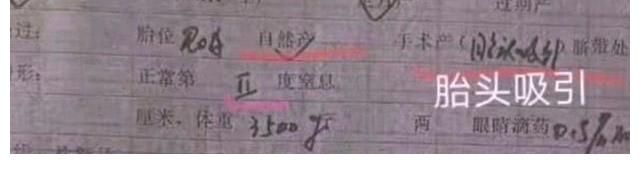 过期产
过: 胎位 ROA 自然产 手术产(胎头吸引) 脐带处
形: 正常第 II 度窒息
胎头吸引
厘米, 体重 3500 两 眼睛滴药 0.5%